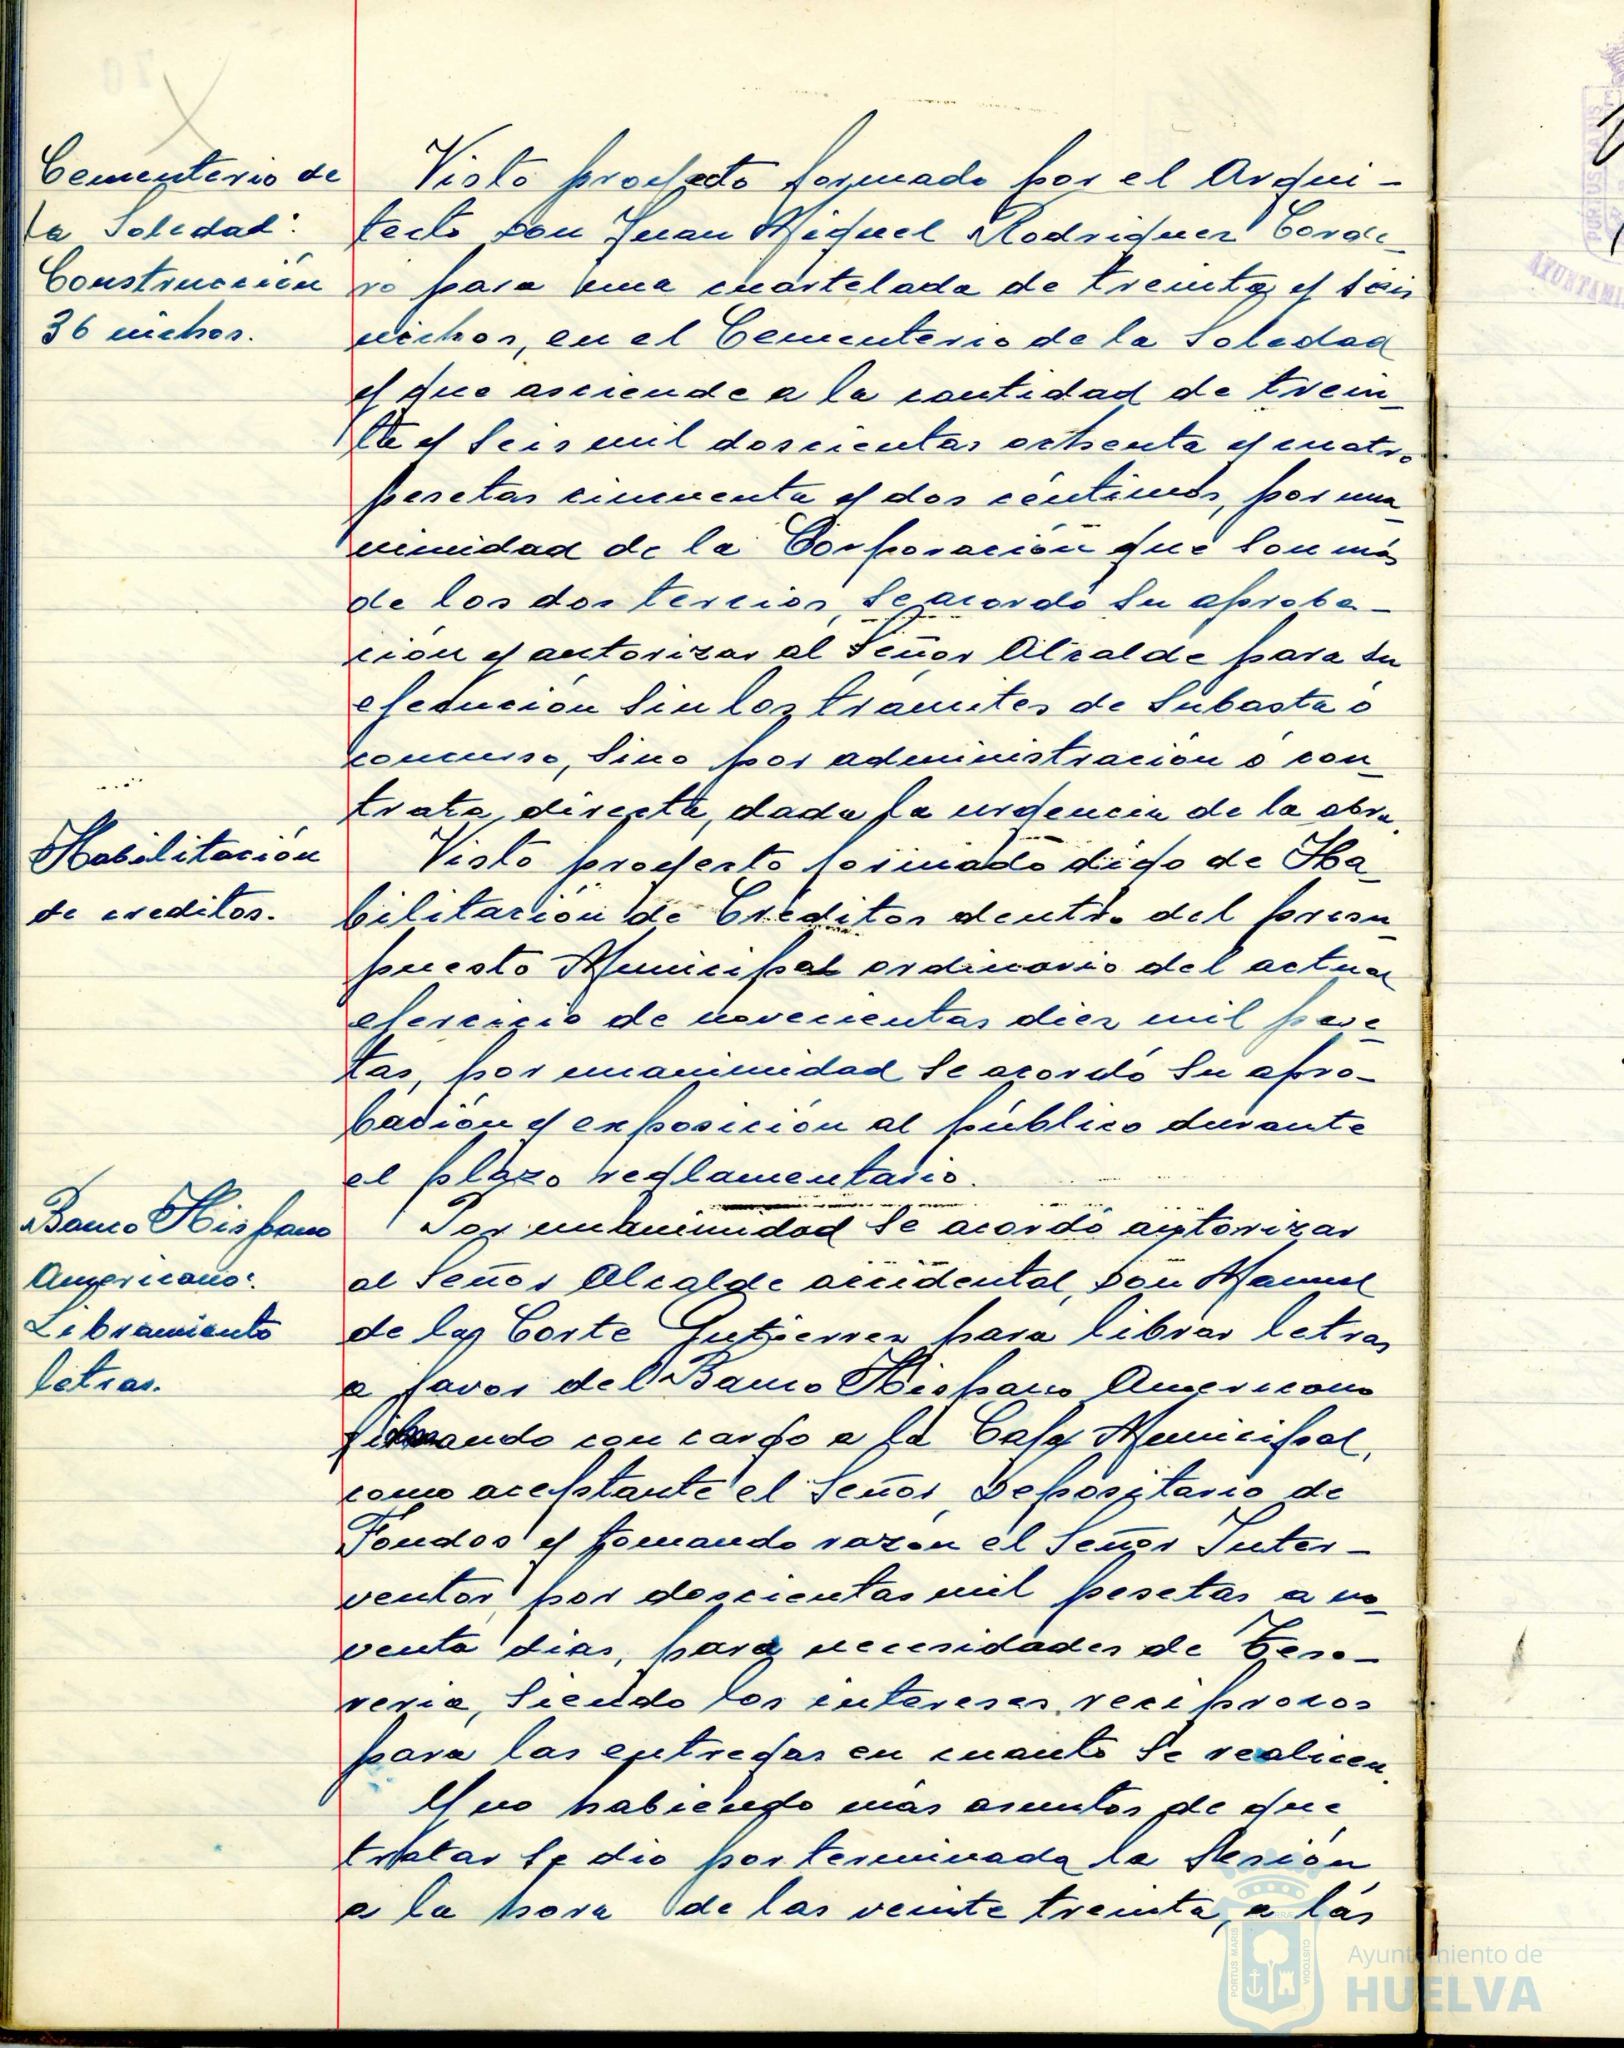 Cementerio de
la Soledad:
Construcción
36 nichos.
Visto proyecto formado por el Arqui-
tecto don Juan Miguel Rodriguez Corde-
ro para una cuartelada de treinta y seis
nichos, en el Cementerio de la Soledad
y que asciende a la cantidad de trein-
ta y seis mil doscientas ochenta y cuatro
pesetas cincuenta y dos céntimos, por una-
nimidad de la Corporación que son más
de los dos tercios, se acordó su aproba-
ción y autorizar al Señor Alcalde para su
ejecución sin los trámites de subasta ó
concurso, sino por administración ó con-
trata directa, dada la urgencia de la obra.
Habilitación
de creditos.
Visto proyecto formado digo de Ha-
bilitación de Créditos dentro del presu-
puesto Municipal ordinario del actual
ejercicio de novecientas diez mil pese-
tas, por unanimidad se acordó su apro-
bación y exposición al público durante
el plazo reglamentario.
Banco Hispano
Americano:
Libramiento
letras.
Por unanimidad se acordó autorizar
al Señor Alcalde accidental, don Manuel
de la Corte Gutierrez para librar letras
a favor del Banco Hispano Americano
librando con cargo a la Caja Municipal,
como aceptante el Señor Depositario de
Fondos y tomando razón el Señor Inter-
ventor, por doscientas mil pesetas a no-
venta dias, para necesidades de Teso-
reria, siendo los intereses reciprocos
para las entregas en cuanto se realicen.
Y no habiendo más asuntos de que
tratar se dio por terminada la sesión
a la hora de las veinte treinta, a las
PORTUS MARIS
CUSTODIA
Ayuntamiento de
HUELVA